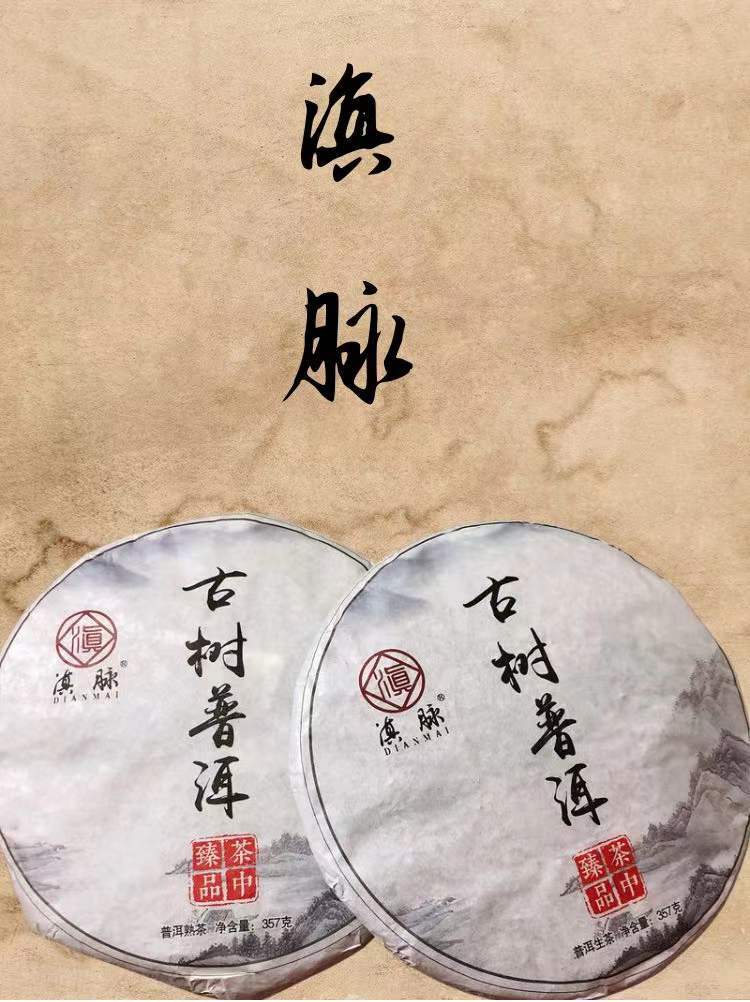 滇
脉
滇
滇脉®
DIANMAI
古树普洱
茶中
臻品
普洱熟茶 净含量：357克
滇
滇脉®
DIANMAI
古树普洱
茶中
臻品
普洱生茶 净含量：357克